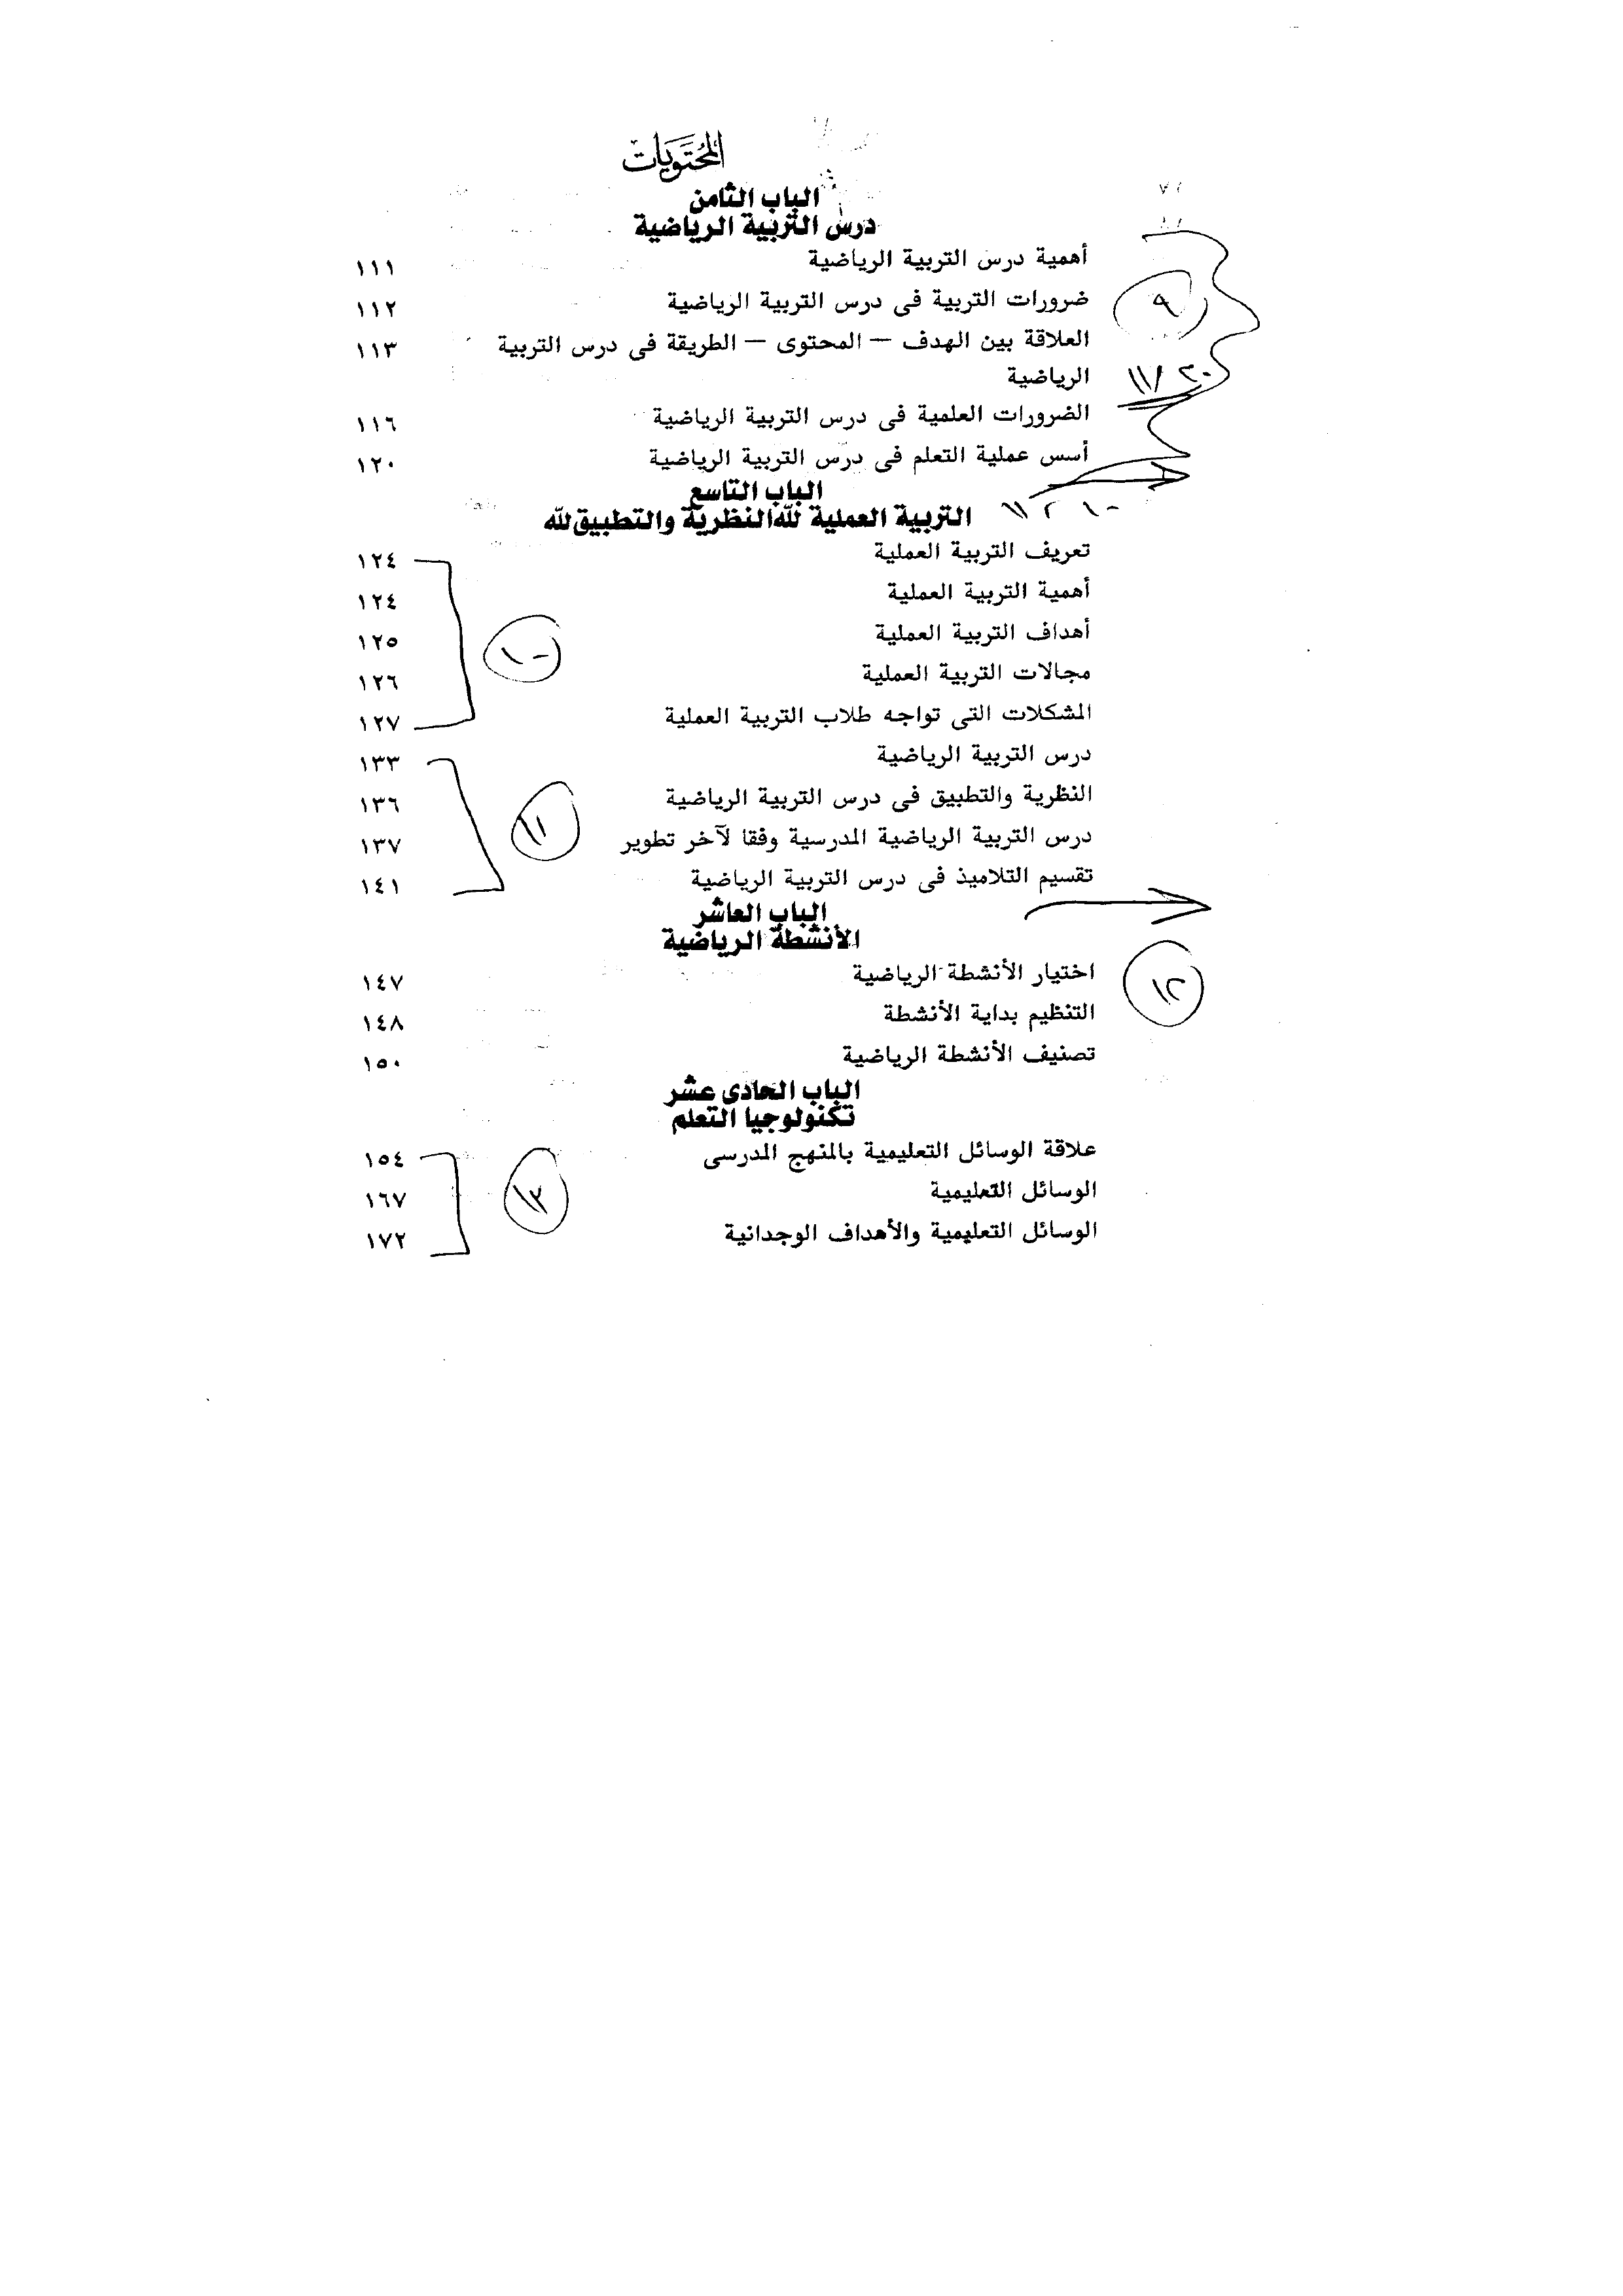 المحتويات
الباب الثامن
درس التربية الرياضية
أهمية درس التربية الرياضية ١١١
ضرورات التربية فى درس التربية الرياضية ١١٢
العلاقة بين الهدف — المحتوى — الطريقة فى درس التربية ١١٣
الرياضية
الضرورات العلمية فى درس التربية الرياضية ١١٦
أسس عملية التعلم فى درس التربية الرياضية ١٢٠
٩
الباب التاسع
التربية العملية لله النظرية والتطبيق لله
تعريف التربية العملية ١٢٤
أهمية التربية العملية ١٢٤
أهداف التربية العملية ١٢٥
مجالات التربية العملية ١٢٦
المشكلات التى تواجه طلاب التربية العملية ١٢٧
١٠
درس التربية الرياضية ١٣٣
النظرية والتطبيق فى درس التربية الرياضية ١٣٦
درس التربية الرياضية المدرسية وفقا لآخر تطوير ١٣٧
تقسيم التلاميذ فى درس التربية الرياضية ١٤١
١١
الباب العاشر
الأنشطة الرياضية
اختيار الأنشطة الرياضية ١٤٧
التنظيم بداية الأنشطة ١٤٨
تصنيف الأنشطة الرياضية ١٥٠
١٢
الباب الحادى عشر
تكنولوجيا التعلم
علاقة الوسائل التعليمية بالمنهج المدرسى ١٥٤
الوسائل التعليمية ١٦٧
الوسائل التعليمية والأهداف الوجدانية ١٧٢
١٣